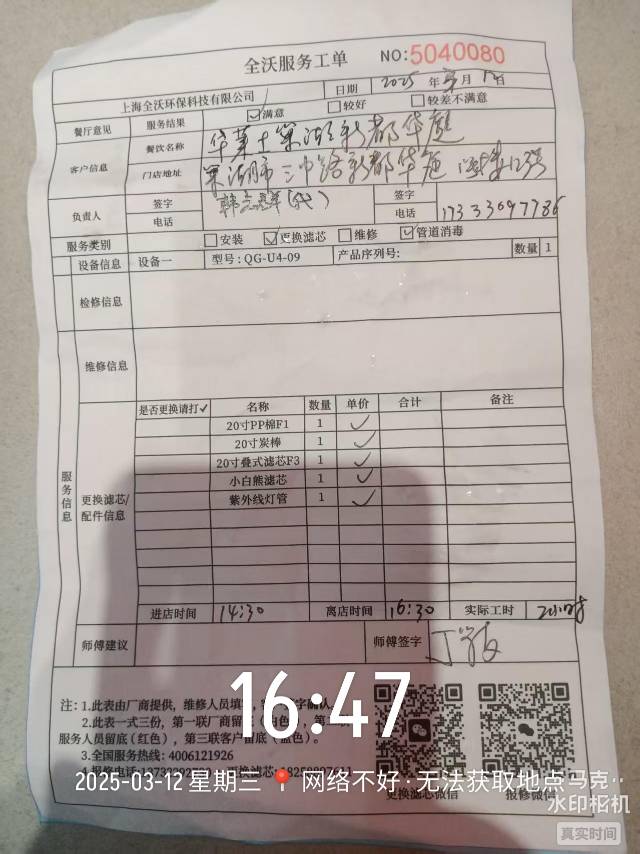 全沃服务工单 NO:5040080
上海全沃环保科技有限公司 日期 2025年3月12日
餐厅意见 服务结果 满意 较好 较差不满意
客户信息 餐饮名称 华莱士巢湖新都华庭
门店地址 巢湖市 路新都华庭
负责人 签字 签字
电话 电话 17333097786
服务类别 安装 更换滤芯 维修 管道消毒
设备信息 设备一 型号:QG-U4-09 产品序列号: 数量 1
检修信息
维修信息
服务信息
更换滤芯/配件信息
是否更换请打✓ 名称 数量 单价 合计 备注
20寸PP棉F1 1 ✓
20寸炭棒 1 ✓
20寸叠式滤芯F3 1 ✓
小白熊滤芯 1 ✓
紫外线灯管 1 ✓
进店时间 14:30 离店时间 16:30 实际工时 2小时
师傅建议 师傅签字
注:1.此表由厂商提供,维修人员填写,字确认。
2.此表一式三份,第一联厂商留底(白色),第二
服务人员留底(红色),第三联客户留底(蓝色)。
3.全国服务热线:4006121926
4.报修电话 更换滤芯
更换滤芯微信 报修微信
16:47
2025-03-12 星期三 网络不好·无法获取地点
马克
水印相机
真实时间